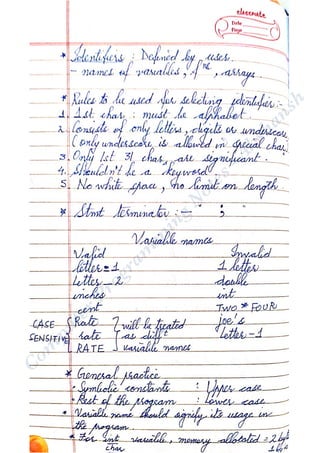 classmate
Date
Page
* Identifiers : Defined by user.
- names of variables, fns, arrays.
* Rules to be used for selecting identifier:
1. 1st char : must be alphabet.
2. Consists of only letters, digits or underscore
(only underscore is allowed in special char.
3. Only 1st 31 char, are significant.
4. Shouldn't be a keyword
5. No white space, no limit on length.
* Stmt terminator :- ;
Variable names
Valid Invalid
letter=1 1 letter
letter_2 double
inches int
cent TWO * FOUR
CASE SENSITIVE { Rate } will be treated joe's
rate as difft letter-1
RATE variable names
* General practice
• Symbolic constants : Upper case
• Rest of the program : Lower case
• Variable name should signify its usage in
the program.
• For int variable, memory allocated = 2 byte
char 1 byte